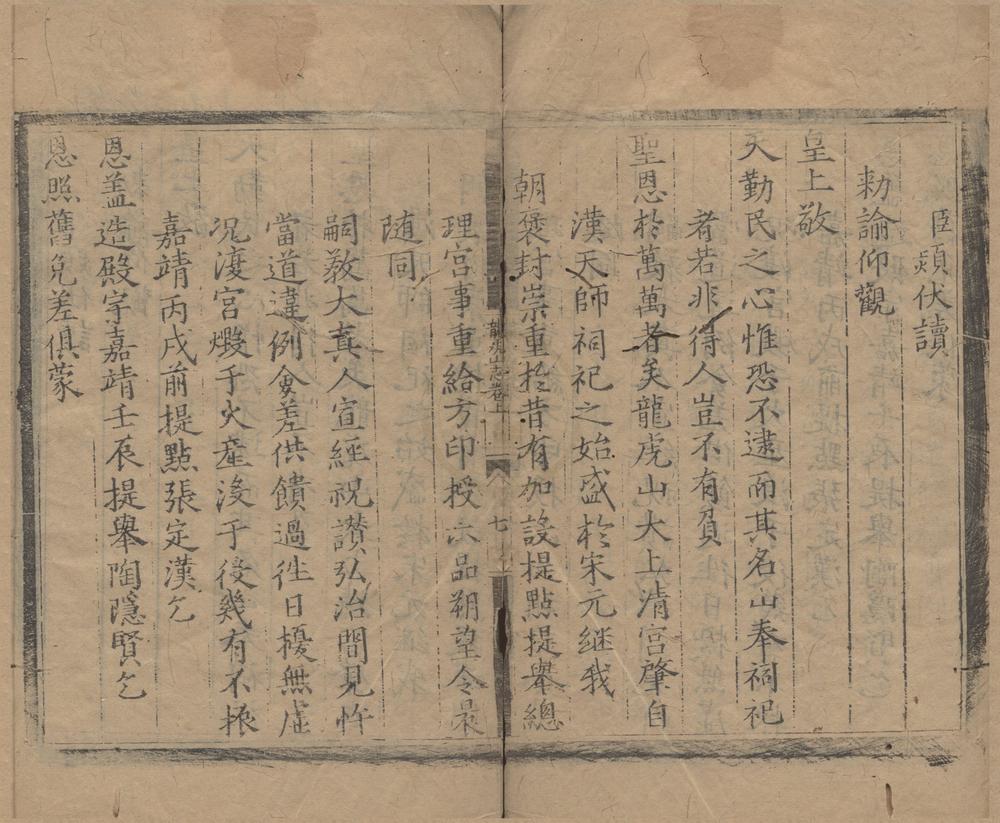 臣熲伏讀
勑諭仰觀
皇上敬
天勤民之心惟恐不逮而其名山奉祠祀
者若非得人豈不有負
聖恩於萬萬者矣龍虎山大上清宮肇自
漢天師祠祀之始盛於宋元継我
朝褒封崇重扵昔有加設提點提舉總
龍虎山志卷上
七
理宮事重給方印授六品朔望令衆
随同
嗣教大真人宣經祝讃弘治間見忤
當道違例僉差供饋過徃日擾無虗
况瓊宮燬于火產沒于侵幾有不振
嘉靖丙戌前提點張定漢乞
恩盖造殿宇嘉靖壬辰提舉陶隱賢乞
恩照舊免差俱蒙